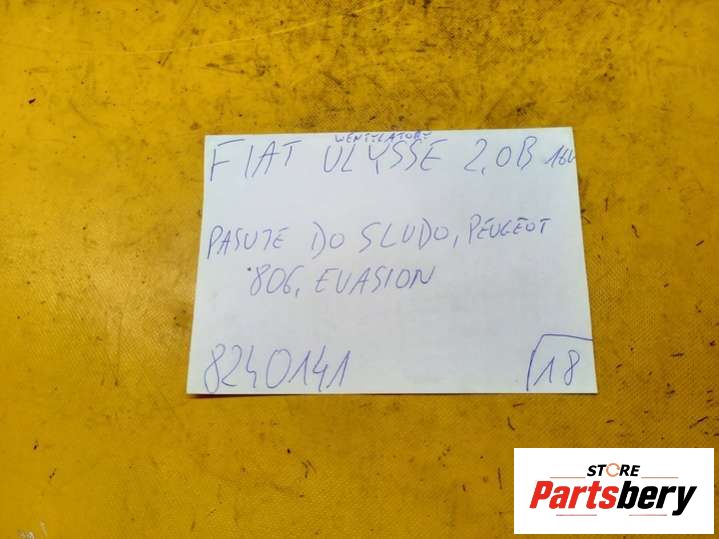 WENTYLATORY
FIAT ULYSSE 2,0B 16V
PASUJE DO SCUDO, PEUGEOT
806, EVASION
8240141
18
STORE
Partsbery